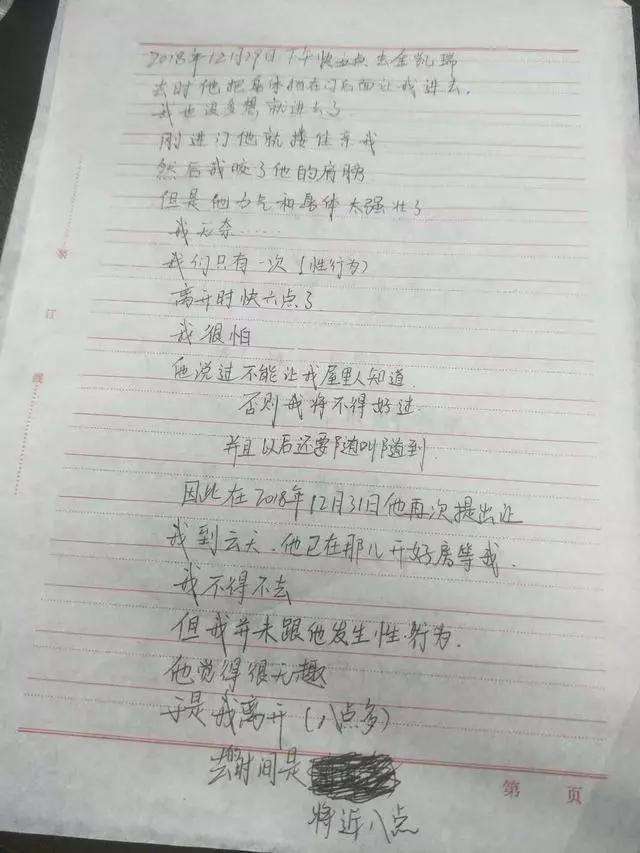 2018年12月29日下午快五点去金凯瑞
去时他把身体拍在门后面让我进去.
我也没多想就进去了
刚进门他就搂住亲我
然后我咬了他的肩膀
但是他力气和身体太强壮了
我无奈……
我们只有一次(性行为)
离开时快六点了
我很怕
他说过不能让我屋里人知道.
否则我将不得好过.
并且以后还要随叫随到.
因此在2018年12月31日他再次提出让
我到云天.他已在那儿开好房等我.
我不得不去
但我并未跟他发生性行为.
他觉得很无趣
于是我离开(八点多)
去时间是
将近八点
装
订
线
第 页